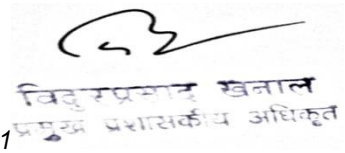 विदुरप्रसाद खनाल
1 प्रमुख प्रशासकीय अधिकृत